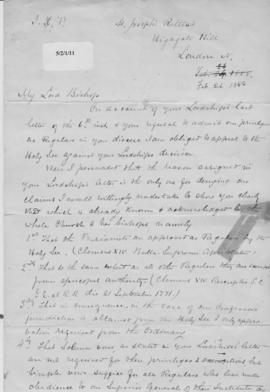 J. X. P.
St. Joseph's Retreat
Highgate Hill
London N.
Feb. 1886
5/2/1/11
My Lord Bishop
On account of your Lordship's last
letter of the 6th inst & your refusal to admit our privileges
as Regulars in your diocese I am obliged to appeal to the
Holy See against your Lordship's decision
Were I persuaded that the reason assigned in
your Lordship's letter is the only one for denying our
claims I would willingly undertake to show you clearly
what is already known & acknowledged by the
whole Church & her bishops namely
1st That the Passionists are approved as Regulars by the
Holy See. (Clement XIV Bulla Supremi Apostolatus)
2nd That to the same extent as all other Regulars they are exempt
from episcopal authority (Clement XIV
3rd That in consequence, in the case of our Confessors
jurisdiction is obtained from the Holy See & only approbation
required from the Ordinary
4th That Solemn vows as stated in your Lordship's letter
are not required for these privileges & exemptions but
Simple vows suffice for all Regulars who live under
obedience to our Superior General of their Institute as